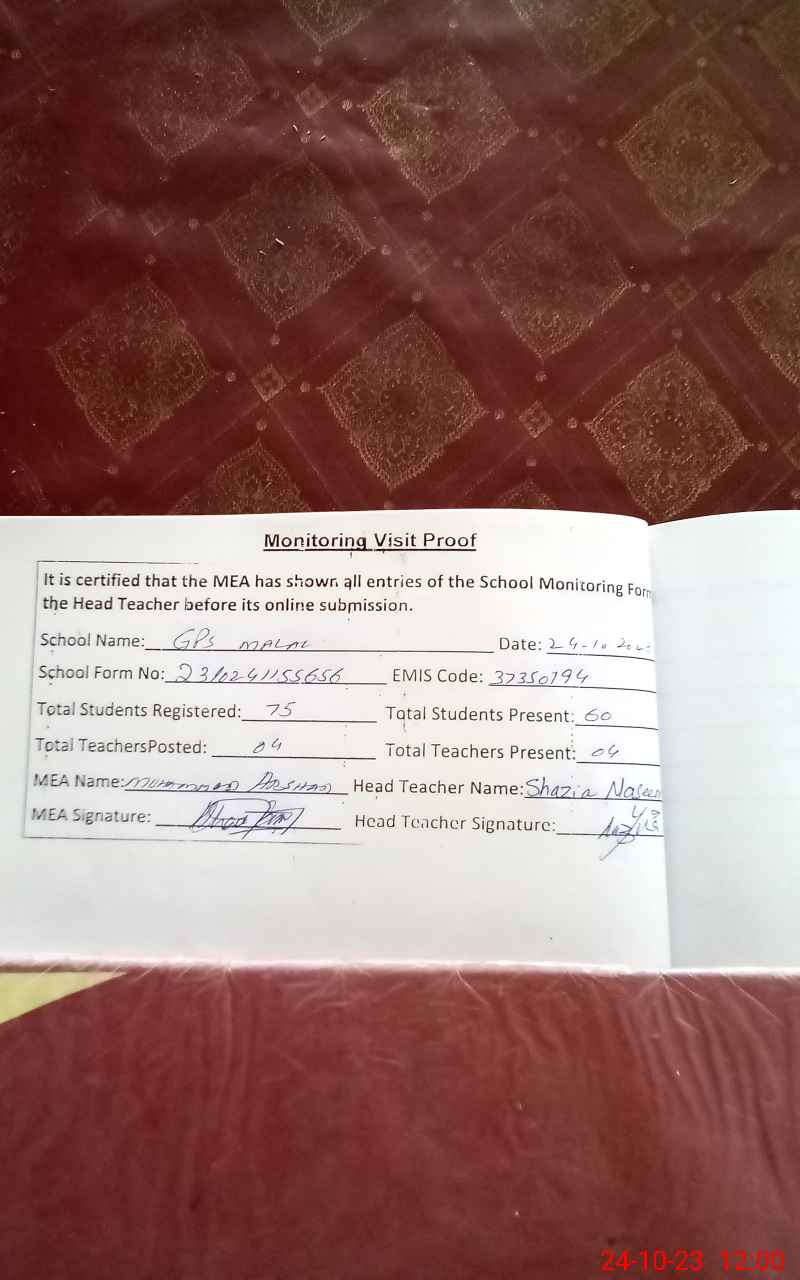 Monitoring Visit Proof
It is certified that the MEA has shown all entries of the School Monitoring Form
the Head Teacher before its online submission.
School Name: GPS MALAL Date: 24-10 2023
School Form No: 2310241155656 EMIS Code: 37350194
Total Students Registered: 75 Total Students Present: 60
Total TeachersPosted: 04 Total Teachers Present: 04
MEA Name: MUHAMMAD ARSHAD Head Teacher Name: Shazia Naseem
MEA Signature: Head Teacher Signature:
24-10-23 12:00